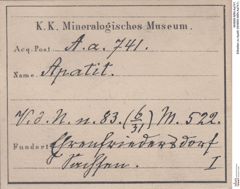 K. K. Mineralogisches Museum.
Acq. Post A. a. 741.
Name: Apatit.
V. d. N. n. 83. (6/31) M. 522.
Fundort Ehrenfriedersdorf
Sachsen. I